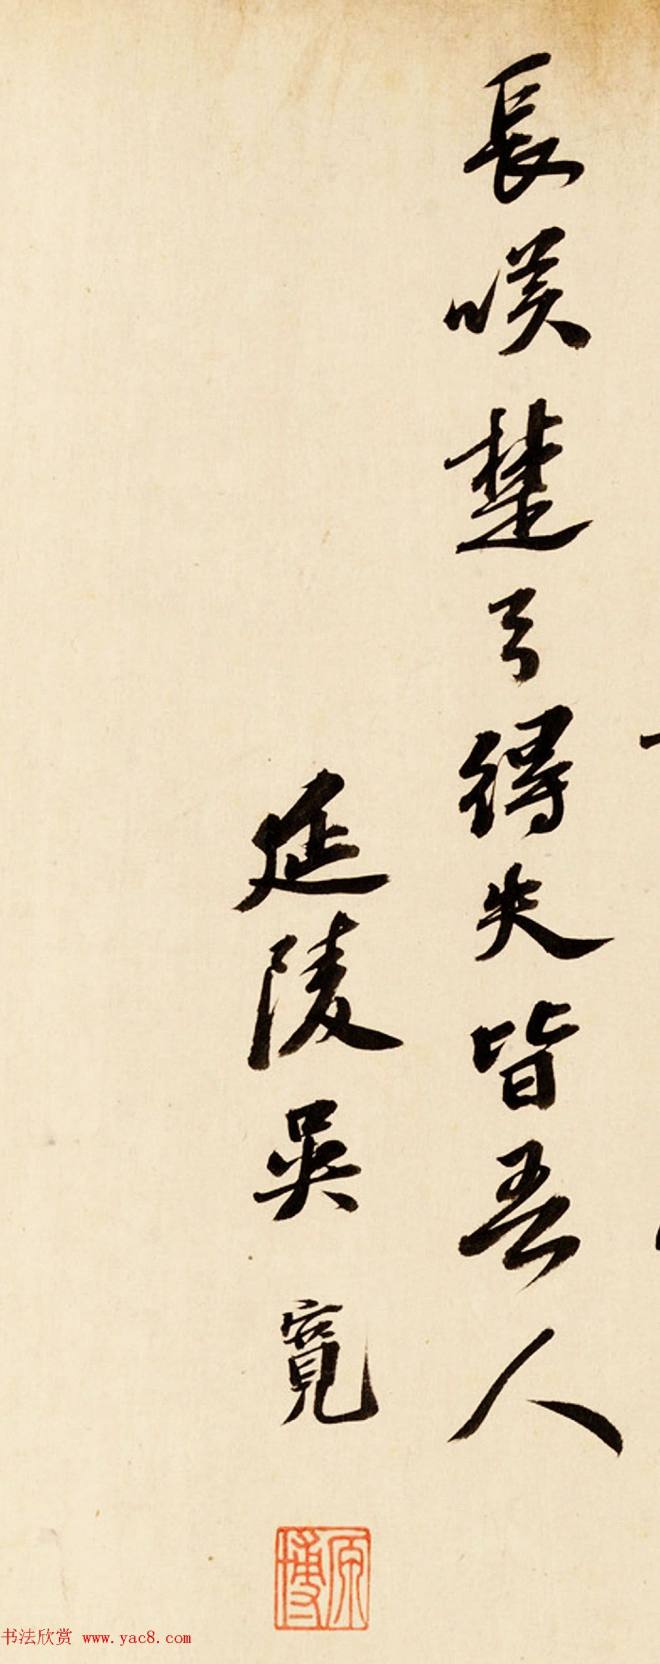 長嘆楚弓得失皆吾人
延陵吳寬
原博
书法欣赏 www.yac8.com